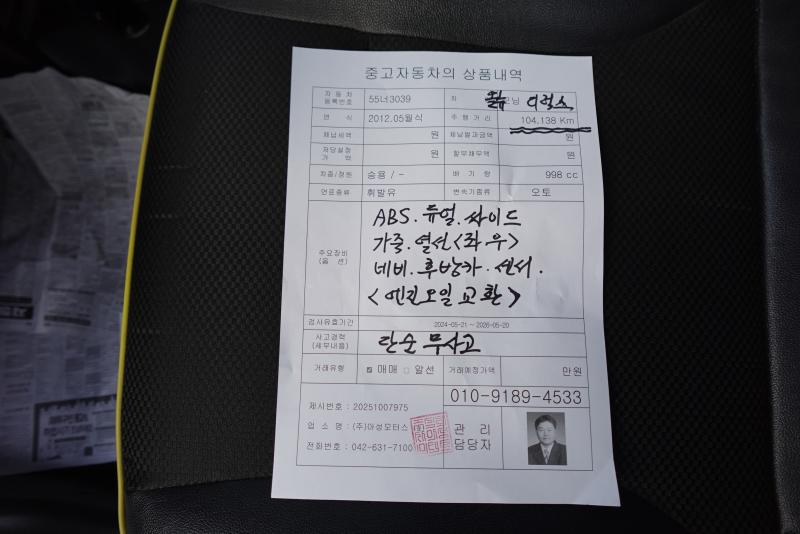 중고자동차의 상품내역
자동차 등록번호 55너3039 차 명 디럭스
연 식 2012.05월식 주행거리 104,138 Km
체납세액 원 체납벌과금액 원
저당설정 가 액 원 할부채무액 원
차종/정원 승용 / - 배 기 량 998 cc
연료종류 휘발유 변속기종류 오토
주요장비 (옵 션)
ABS. 듀얼. 싸이드
가죽. 열선<좌우>
네비. 후방카. 센서.
<엔진오일 교환>
검사유효기간 2024-05-21 ~ 2026-05-20
사고경력 (세부내용) 단순 무사고
거래유형 ☑ 매매 □ 알선 거래예정가액 만원
제시번호 : 20251007975
업 소 명 : (주)아성모터스
전화번호 : 042-631-7100
010-9189-4533
관 리
담당자